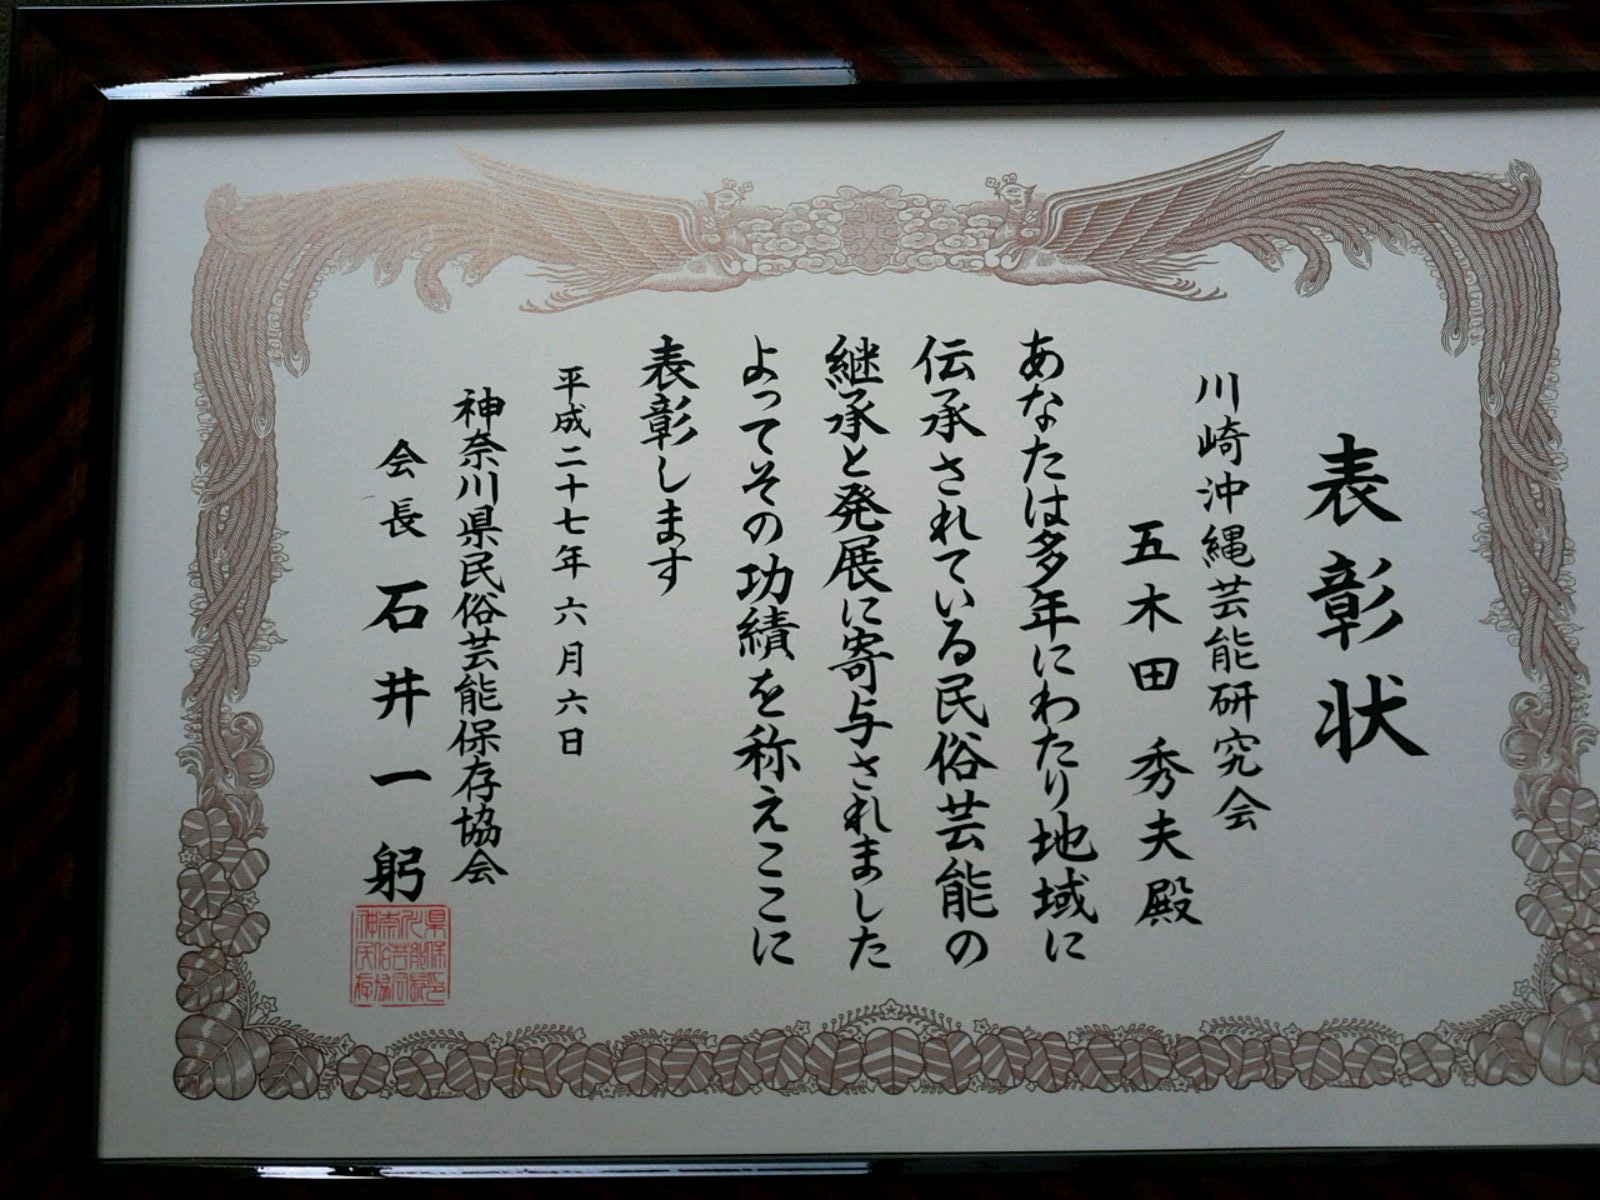 表彰状
川崎沖縄芸能研究会
五木田秀夫殿
あなたは多年にわたり地域に
伝承されている民俗芸能の
継承と発展に寄与されました
よってその功績を称えここに
表彰します
平成二十七年六月六日
神奈川県民俗芸能保存協会
会長 石井一躬